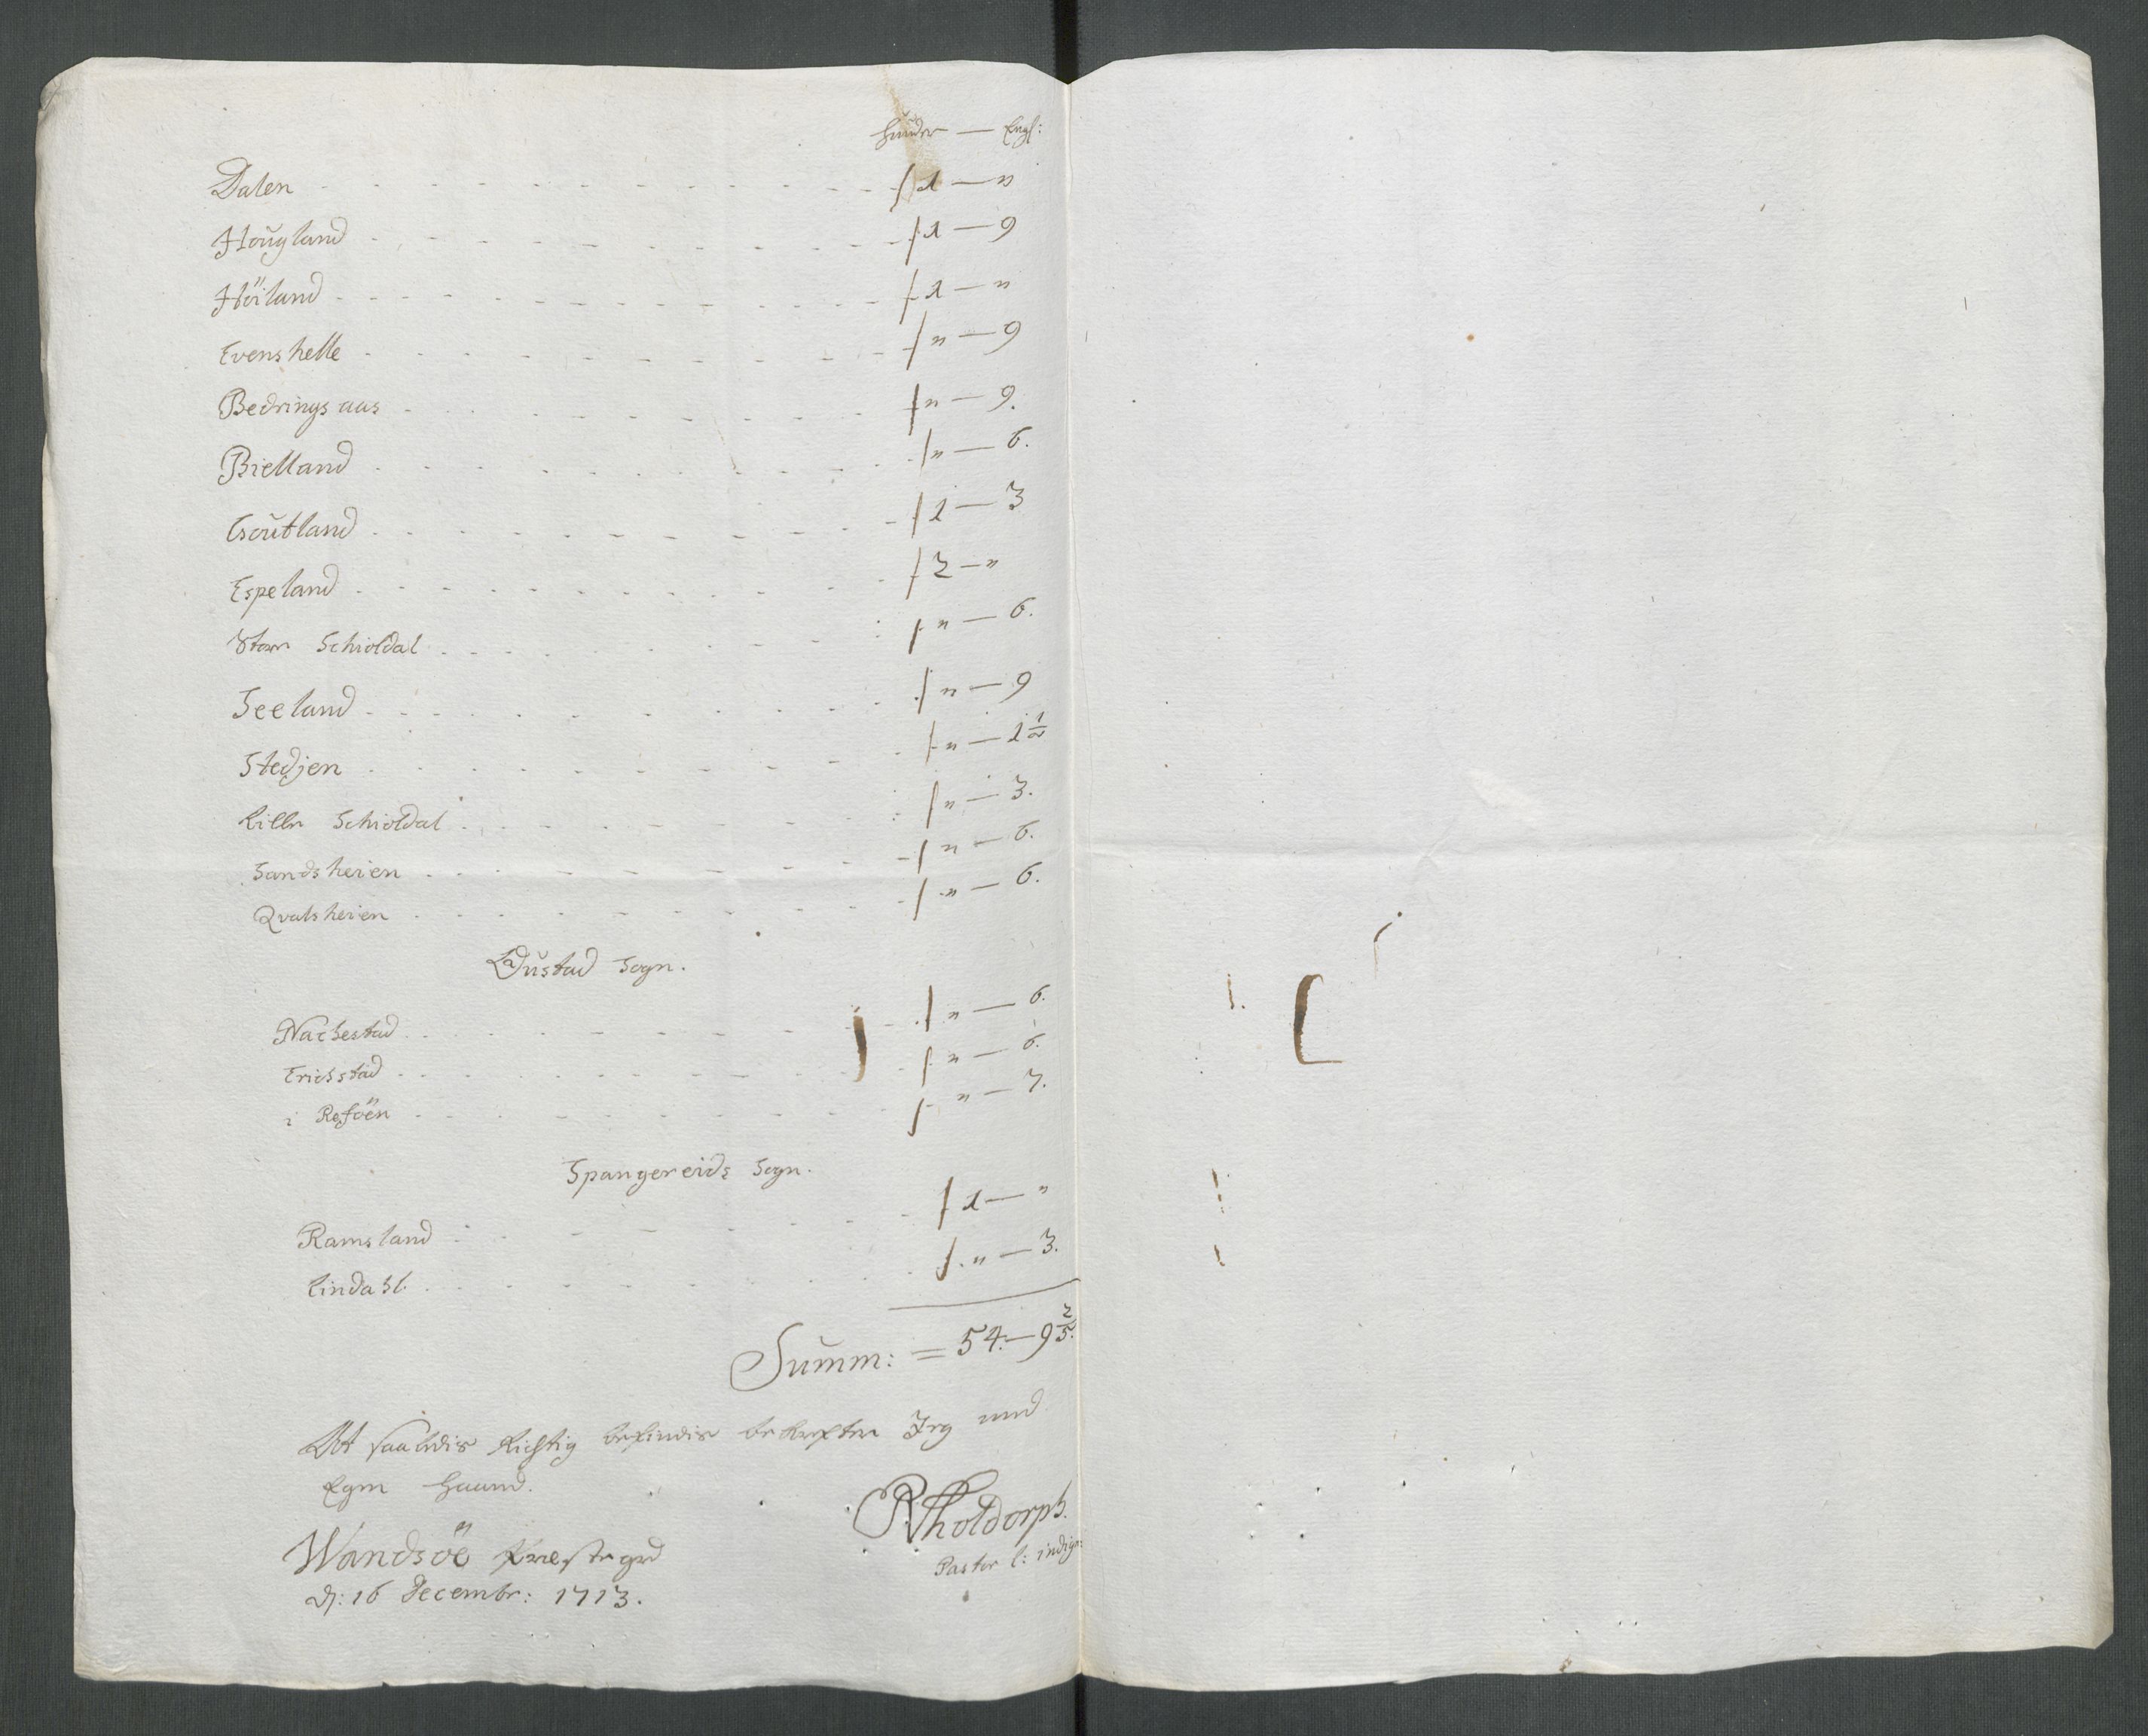 Huuder — Engl:
Dalen - - - 1 — "
Hougland - - - 1 — 9
Höiland - - - 1 — "
Evenshelle - - - " — 9
Bedringsaas - - - " — 9.
Bielland - - - " — 6.
Goutland - - - 1 — 3
Espeland - - - 2 — "
Store Schioldal - - - " — 6.
Seeland - - - " — 9
Stedjen - - - " — 1½
Lille Schioldal - - - " — 3.
Sandsheien - - - " — 6.
Qvalsheien - - - " — 6.
Oustad Sogn.
Nachestad - - - " — 6.
Erichstad - - - " — 6.
i Reföen - - - " — 7.
Spangereids Sogn.
Ramsland - - - 1 — "
Lindahl. - - - " — 3.
Summ: = 54. — 9 2/5.
At saaledis Rigtig befindis bekrefter Jeg med
Egen Haand.
Wandsöe Præstegrd
d: 16 Decembr: 1713.
RTholdorph.
Pastor l: indign: